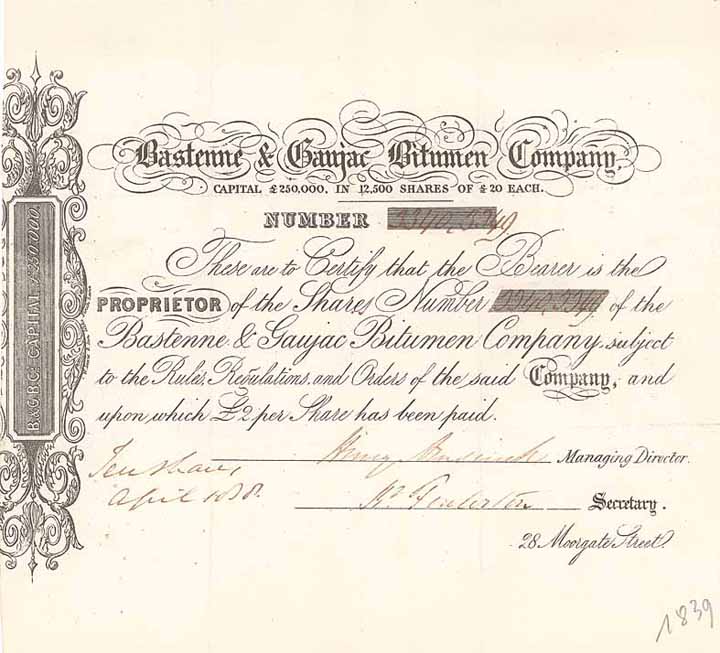 Bastenne & Gaujac Bitumen Company.
CAPITAL £250,000. IN 12,500 SHARES OF £20 EACH.
NUMBER
These are to Certify that the Bearer is the
PROPRIETOR of the Shares Number of the
Bastenne & Gaujac Bitumen Company, subject
to the Rules, Regulations, and Orders of the said Company, and
upon which £2 per Share has been paid.
Henry Managing Director.
Ten shares
April 1838
Secretary.
28 Moorgate Street.
1839
B & G B Co. CAPITAL £250,000